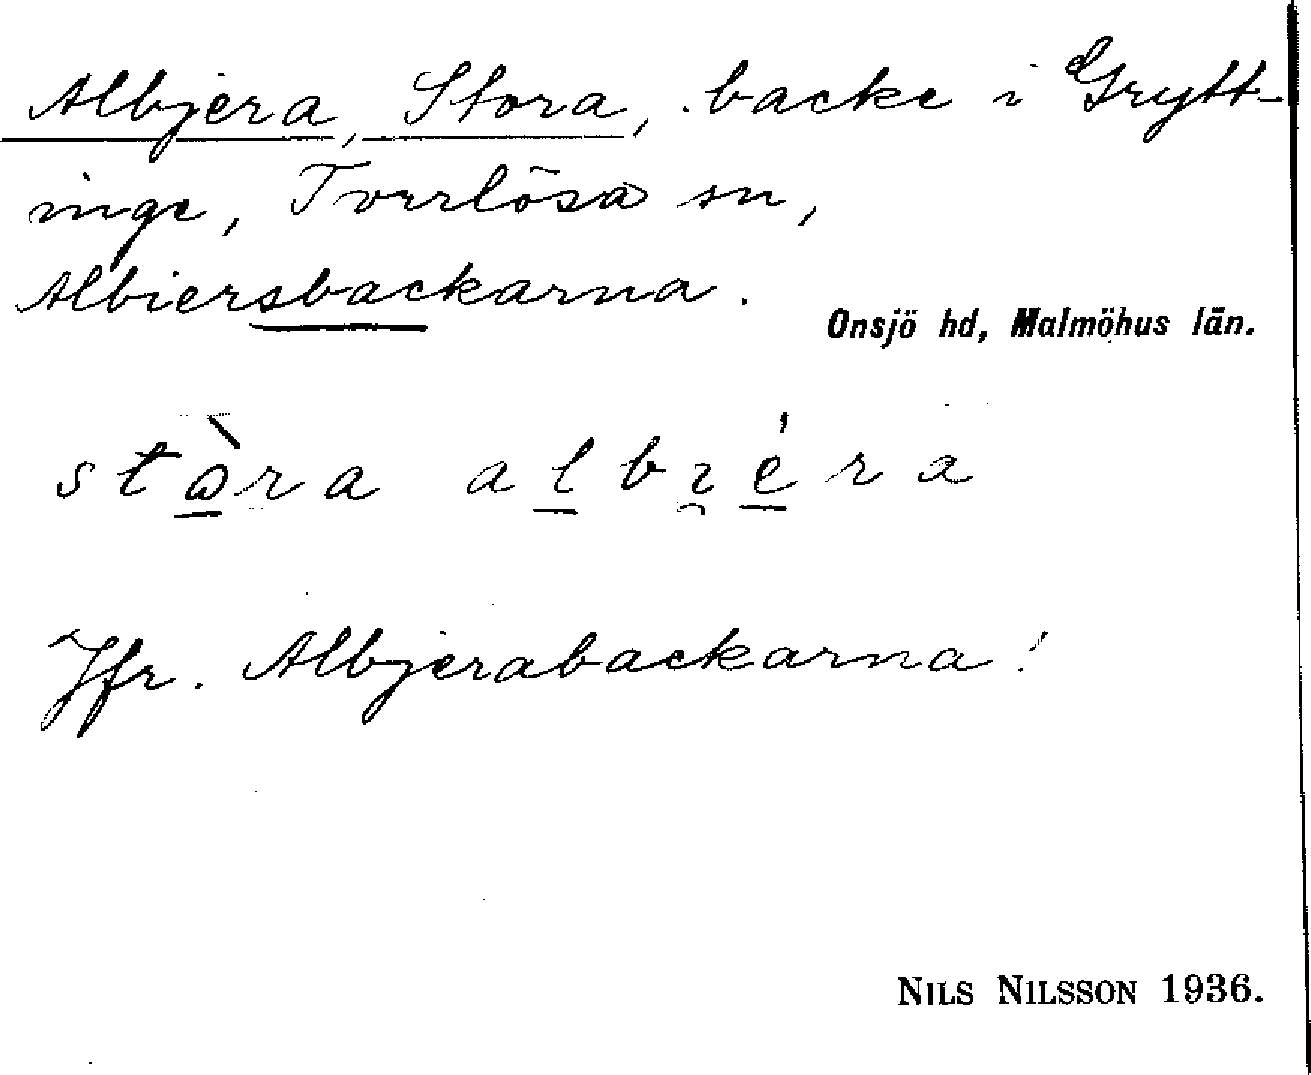 Albjera, Stora, backe i Grytt-
inge, Tverrlösa sn,
Albiersbackarna.
Onsjö hd, Malmöhus län.
Jfr. Albjerabackarna!
NILS NILSSON 1936.